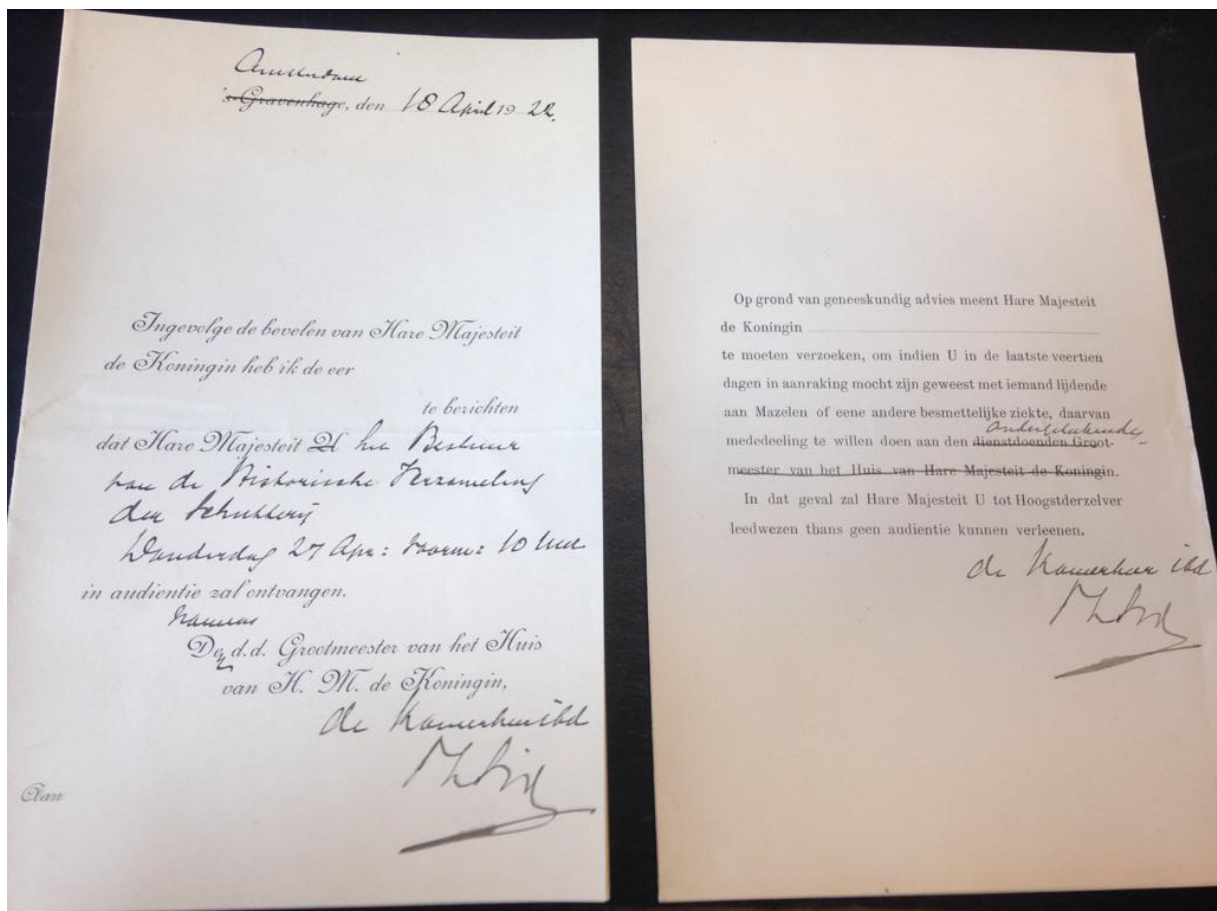 Amsterdam
's-Gravenhage, den 18 April 1922.
Ingevolge de bevelen van Hare Majesteit
de Koningin heb ik de eer
te berichten
dat Hare Majesteit U het Bestuur
van de Historische Verzameling
der Schutterij
Donderdag 27 Apr: voorm: 10 uur
in audientie zal ontvangen.
Namens
Den d.d. Grootmeester van het Huis
van H. M. de Koningin,
de Kamerheer i/bd
Aan
Op grond van geneeskundig advies meent Hare Majesteit
de Koningin
te moeten verzoeken, om indien U in de laatste veertien
dagen in aanraking mocht zijn geweest met iemand lijdende
aan Mazelen of eene andere besmettelijke ziekte, daarvan
ondergeteekende
mededeeling te willen doen aan den dienstdoenden Groot-
meester van het Huis van Hare Majesteit de Koningin.
In dat geval zal Hare Majesteit U tot Hoogstderzelver
leedwezen thans geen audientie kunnen verleenen.
de Kamerheer i/bd